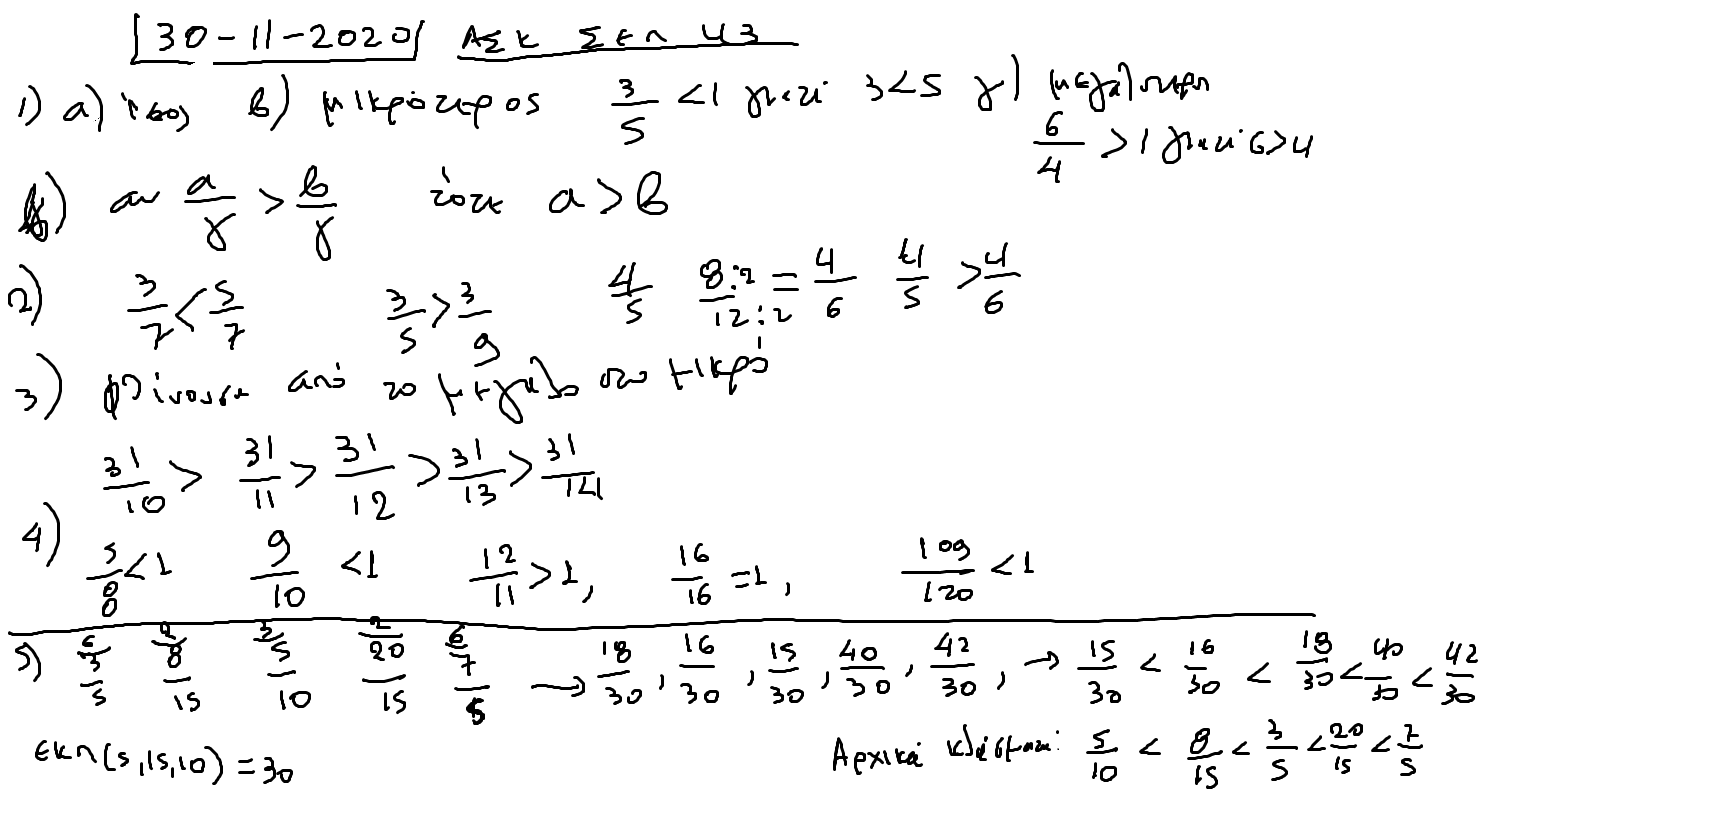 30-11-2020 ΑΣΚ ΣΕΛ 43
1) α) ίσος β) μικρότερος 3/5 <1 γιατί 3<5 γ) μεγαλύτερη
6/4 >1 γιατί 6>4
δ) αν α/γ > β/γ τότε α>β
2) 3/7 < 5/7 3/5 > 3/9 4/5 8:2/12:2 = 4/6 4/5 > 4/6
3) φθίνουσα από το μεγάλο στο μικρό
31/10 > 31/11 > 31/12 > 31/13 > 31/14
4) 5/8 <1 9/10 <1 12/11 >1, 16/16 =1, 109/120 <1
5) 6 3/5 2 8/15 3 5/10 2 20/15 6 7/5 → 18/30, 16/30, 15/30, 40/30, 42/30, → 15/30 < 16/30 < 18/30 < 40/30 < 42/30
ΕΚΠ(5,15,10)=30 Αρχικά κλάσματα: 5/10 < 8/15 < 3/5 < 20/15 < 7/5